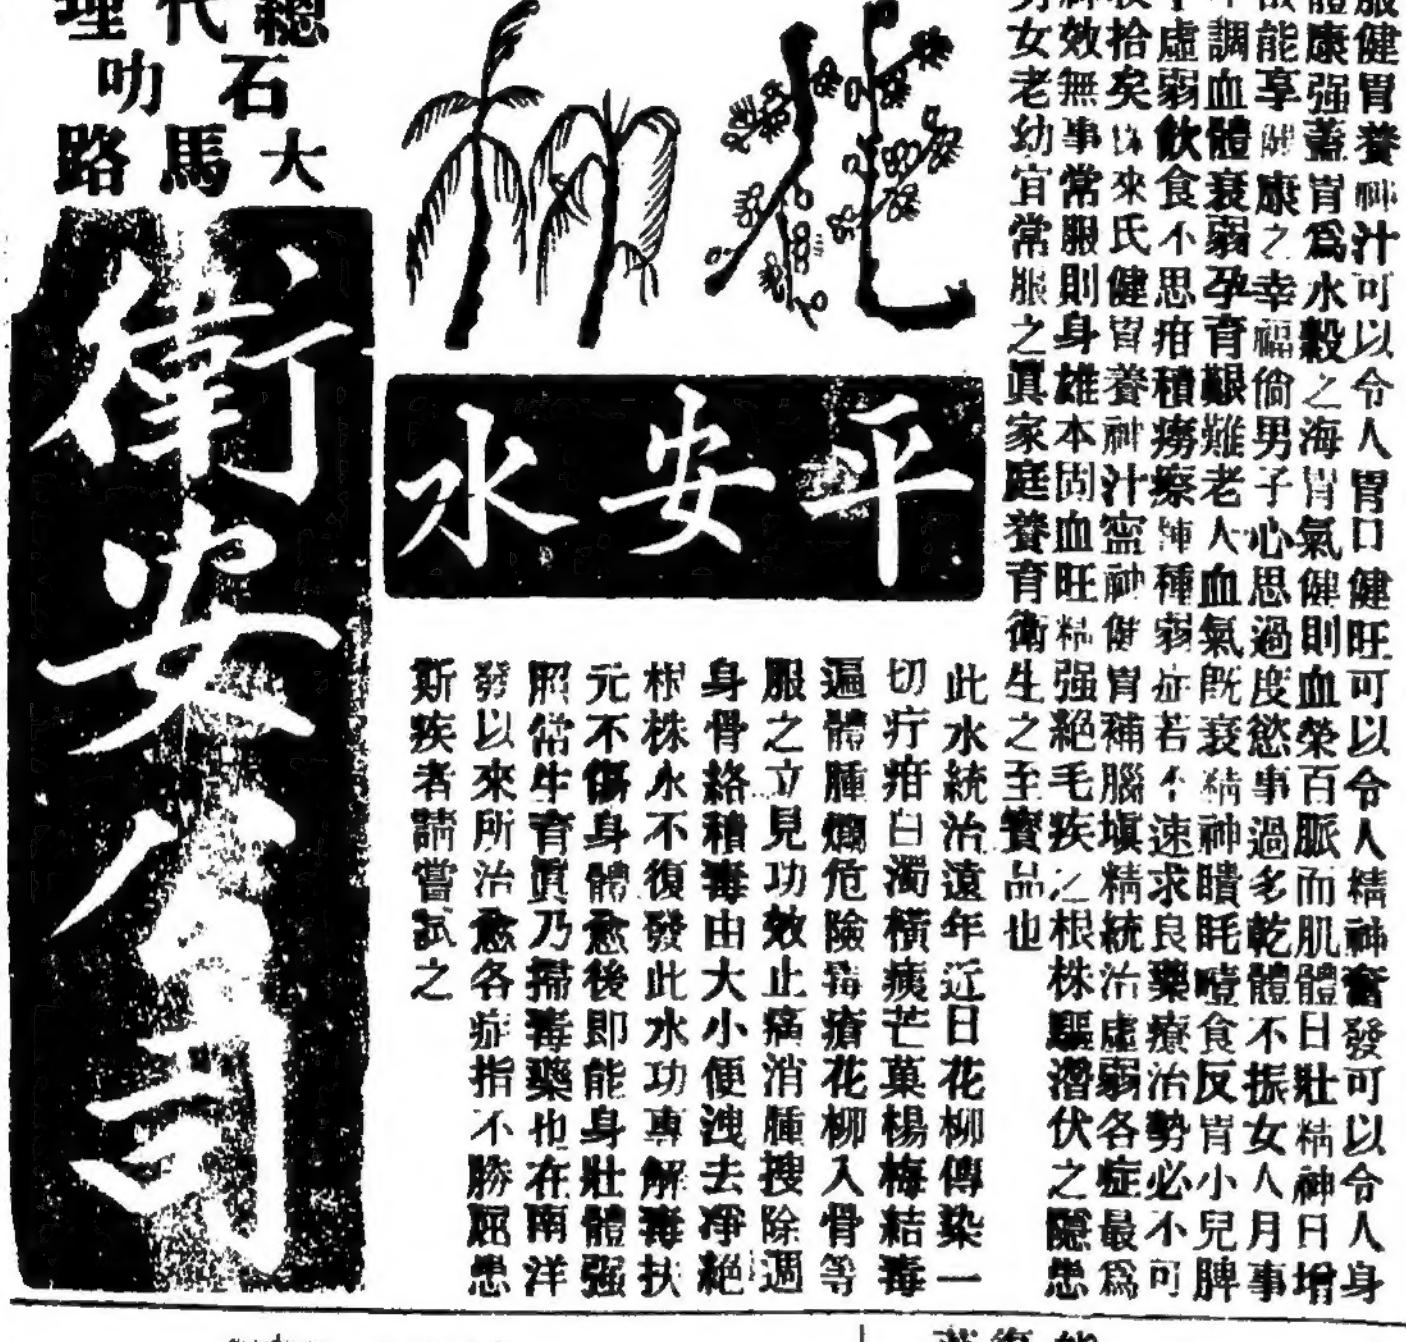 服健胃養神汁可以令人胃口健旺可以令人精神奮發可以令人身
體康强蓋胃爲水穀之海胃氣健則血榮百脈而肌體日壯精神日增
能享健康之幸福倘男子心思過度慾事過多乾體不振女人月事
調血體衰弱孕育艱難老人血氣既衰精神瞶眊噎食反胃小兒脾
虛弱飲食不思疳積癆瘵種種弱症若不速求良藥療治勢必不可
拾矣 來氏健胃養神汁寧神健胃補腦塡精統治虛弱各症最爲
效無事常服則身雄本固血旺精强絕毛疾之根株驅潛伏之隱患
女老幼宜常服之眞家庭養育衛生之至寶品也
花柳
平安水
此水統治遠年近日花柳傳染一
切疔疳白濁橫痃芒菓楊梅結毒
遍體腫爛危險毒瘡花柳入骨等
服之立見功效止痛消腫搜除週
身骨絡積毒由大小便洩去凈絕
根株永不復發此水功專解毒扶
元不傷身體愈後即能身壯體强
照常生育眞乃掃毒藥也在南洋
發以來所治愈各症指不勝屈患
斯疾者請嘗試之
總代理
石叻
大馬路
衛安公司